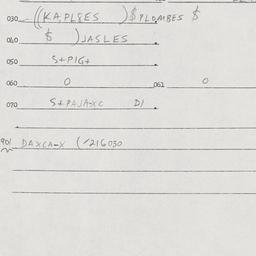 030 ((KAPLSES )$PLOMBES $
040 $ )JASLES
050 S+PIG+
060 0 061 0
070 S+PAJA-XC DI
901 DAXCA-X (-216030